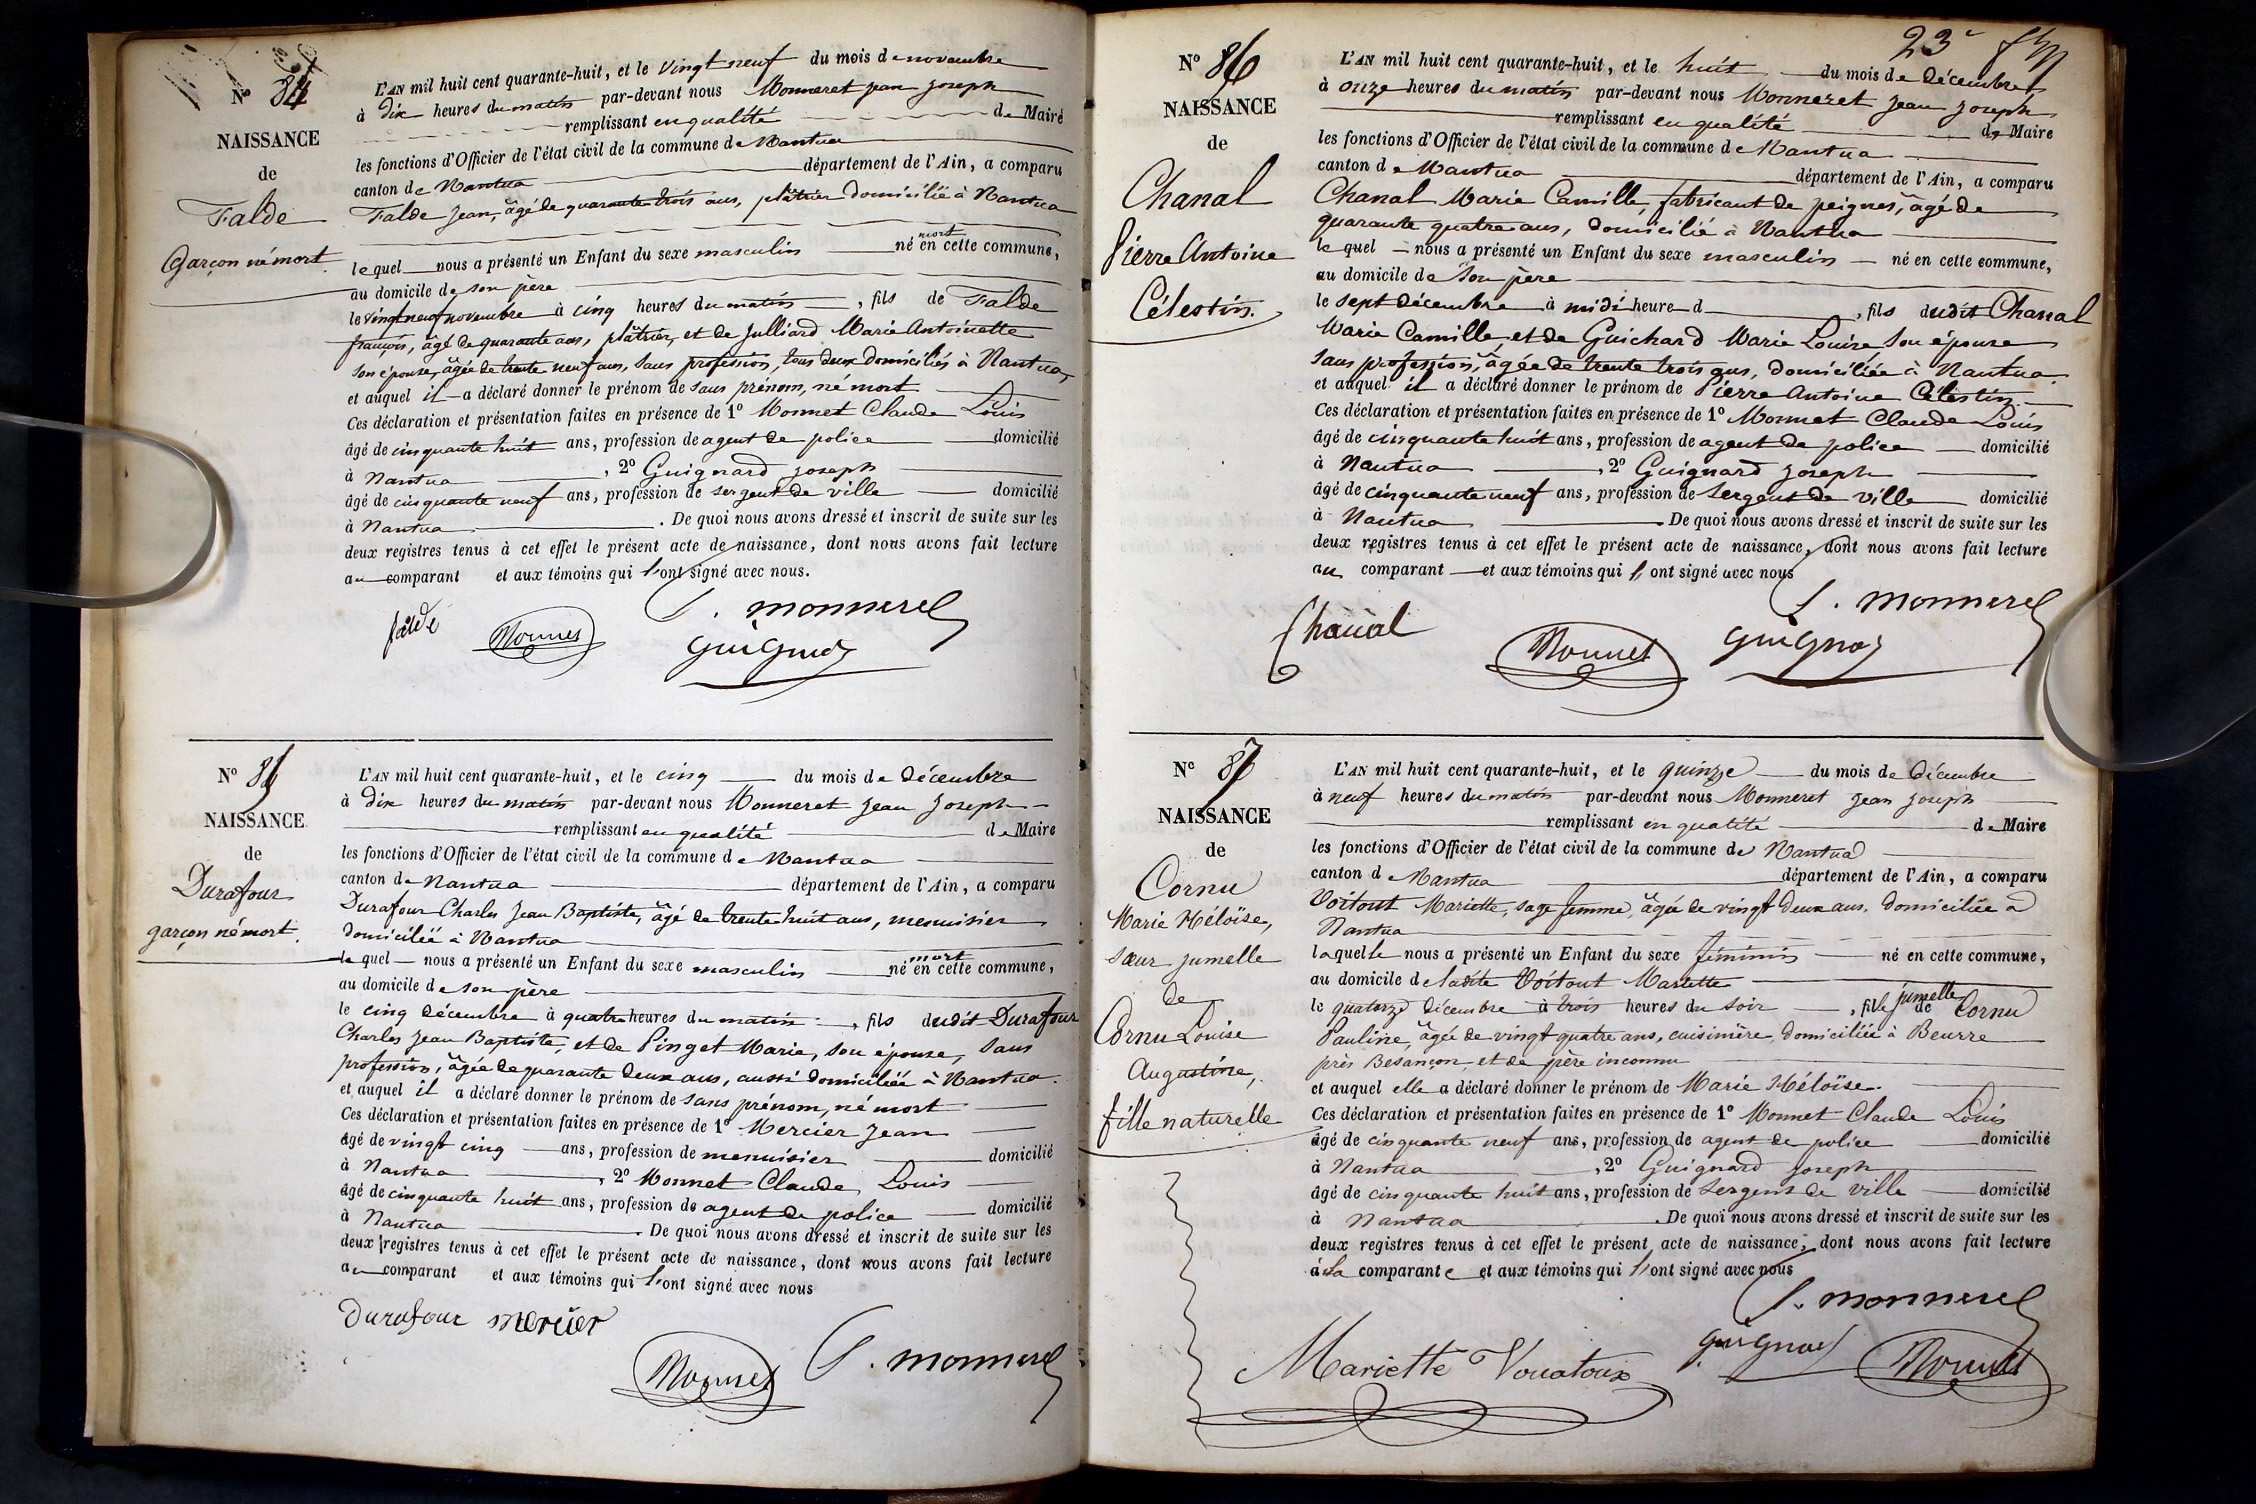 Nº 84
NAISSANCE
de
Falde
Garçon né mort.
L'AN mil huit cent quarante-huit, et le vingt neuf du mois de novembre
à dix heures du matin par-devant nous Monneret jean joseph
remplissant en qualité de Maire
les fonctions d'Officier de l'état civil de la commune de Nantua
canton de Nantua département de l'Ain, a comparu
Falde Jean, âgé de quarante trois ans, plâtrier domicilié à Nantua
mort
lequel nous a présenté un Enfant du sexe masculin né en cette commune,
au domicile de son père
le vingt neuf novembre à cinq heures du matin, fils de Falde
françois, âgé de quarante ans, plâtrier, et de Julliard Marie Antoinette
son épouse, âgée de trente neuf ans, sans profession, tous deux domiciliés à Nantua,
et auquel il a déclaré donner le prénom de sans prénom, né mort
Ces déclaration et présentation faites en présence de 1º Monnet Claude Louis
âgé de cinquante huit ans, profession de agent de police domicilié
à Nantua, 2º Guignard joseph
âgé de cinquante neuf ans, profession de sergent de ville domicilié
à Nantua. De quoi nous avons dressé et inscrit de suite sur les
deux registres tenus à cet effet le présent acte de naissance, dont nous avons fait lecture
au comparant et aux témoins qui l'ont signé avec nous.
falde Monnet J. monneret
Guignard
Nº 85
NAISSANCE
de
Durafour
garçon né mort.
L'AN mil huit cent quarante-huit, et le cinq du mois de Décembre
à dix heures du matin par-devant nous Monneret Jean Joseph
remplissant en qualité de Maire
les fonctions d'Officier de l'état civil de la commune de Nantua
canton de Nantua département de l'Ain, a comparu
Durafour Charles Jean Baptiste, âgé de trente huit ans, menuisier
domicilié à Nantua
mort
lequel nous a présenté un Enfant du sexe masculin né en cette commune,
au domicile de son père
le cinq décembre à quatre heures du matin, fils dudit Durafour
Charles Jean Baptiste, et de Pinget Marie, son épouse, sans
profession, âgée de quarante deux ans, aussi domiciliée à Nantua.
et auquel il a déclaré donner le prénom de sans prénom, né mort
Ces déclaration et présentation faites en présence de 1º Mercier Jean
âgé de vingt cinq ans, profession de menuisier domicilié
à Nantua, 2º Monnet Claude Louis
âgé de cinquante huit ans, profession de agent de police domicilié
à Nantua. De quoi nous avons dressé et inscrit de suite sur les
deux registres tenus à cet effet le présent acte de naissance, dont nous avons fait lecture
au comparant et aux témoins qui l'ont signé avec nous
Durafour mercier
Monnet J. monneret
23e
Nº 86
NAISSANCE
de
Chanal
Pierre Antoine
Célestin.
L'AN mil huit cent quarante-huit, et le huit du mois de Décembre
à onze heures du matin par-devant nous Monneret Jean Joseph
remplissant en qualité de Maire
les fonctions d'Officier de l'état civil de la commune de Nantua
canton de Nantua département de l'Ain, a comparu
Chanal Marie Camille, fabricant de peignes, âgé de
quarante quatre ans, domicilié à Nantua
lequel nous a présenté un Enfant du sexe masculin né en cette commune,
au domicile de son père
le sept décembre à midi heure d, fils dudit Chanal
Marie Camille, et de Guichard Marie Louise son épouse
sans profession, âgée de trente trois ans, domiciliée à Nantua.
et auquel il a déclaré donner le prénom de Pierre Antoine Célestin
Ces déclaration et présentation faites en présence de 1º Monnet Claude Louis
âgé de cinquante huit ans, profession de agent de police domicilié
à Nantua, 2º Guignard joseph
âgé de cinquante neuf ans, profession de sergent de ville domicilié
à Nantua. De quoi nous avons dressé et inscrit de suite sur les
deux registres tenus à cet effet le présent acte de naissance, dont nous avons fait lecture
au comparant et aux témoins qui l'ont signé avec nous
Chanal Monnet J. monneret
Guignard
Nº 87
NAISSANCE
de
Cornu
Marie Héloïse,
sœur jumelle
de
Cornu Louise
Augustine,
fille naturelle
L'AN mil huit cent quarante-huit, et le quinze du mois de Décembre
à neuf heures du matin par-devant nous Monneret Jean Joseph
remplissant en qualité de Maire
les fonctions d'Officier de l'état civil de la commune de Nantua
canton de Nantua département de l'Ain, a comparu
Voitout Mariette, sage femme, âgée de vingt deux ans, domiciliée à
Nantua
laquelle nous a présenté un Enfant du sexe féminin né en cette commune,
au domicile de ladite Voitout Mariette
jumelle
le quatorze décembre à trois heures du soir, fille de Cornu
Pauline, âgée de vingt quatre ans, cuisinière, domiciliée à Beurre
près Besançon, et de père inconnu
et auquel elle a déclaré donner le prénom de Marie Héloïse.
Ces déclaration et présentation faites en présence de 1º Monnet Claude Louis
âgé de cinquante neuf ans, profession de agent de police domicilié
à Nantua, 2º Guignard joseph
âgé de cinquante huit ans, profession de sergent de ville domicilié
à Nantua. De quoi nous avons dressé et inscrit de suite sur les
deux registres tenus à cet effet le présent acte de naissance, dont nous avons fait lecture
à la comparante et aux témoins qui l'ont signé avec nous
J. monneret
Mariette Vouatoux Guignard Monnet